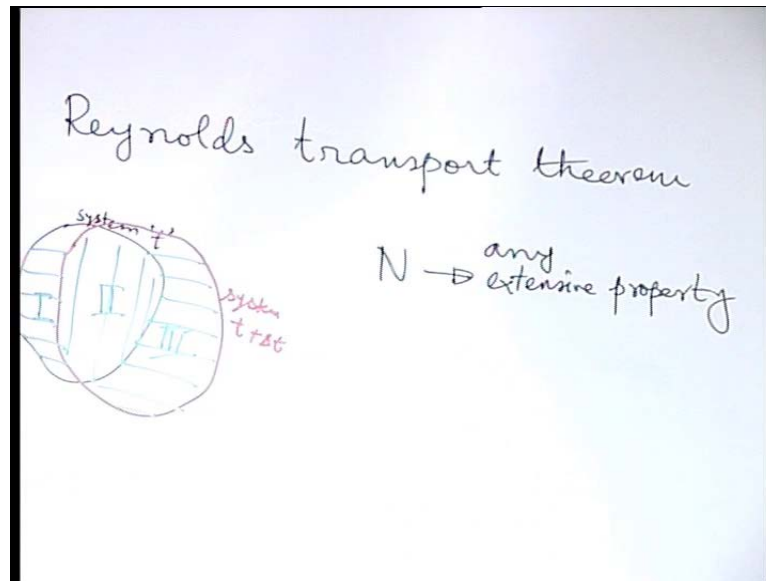 Reynolds transport theorem
system 't'
I II III
system
t+Δt
N → any
extensive property